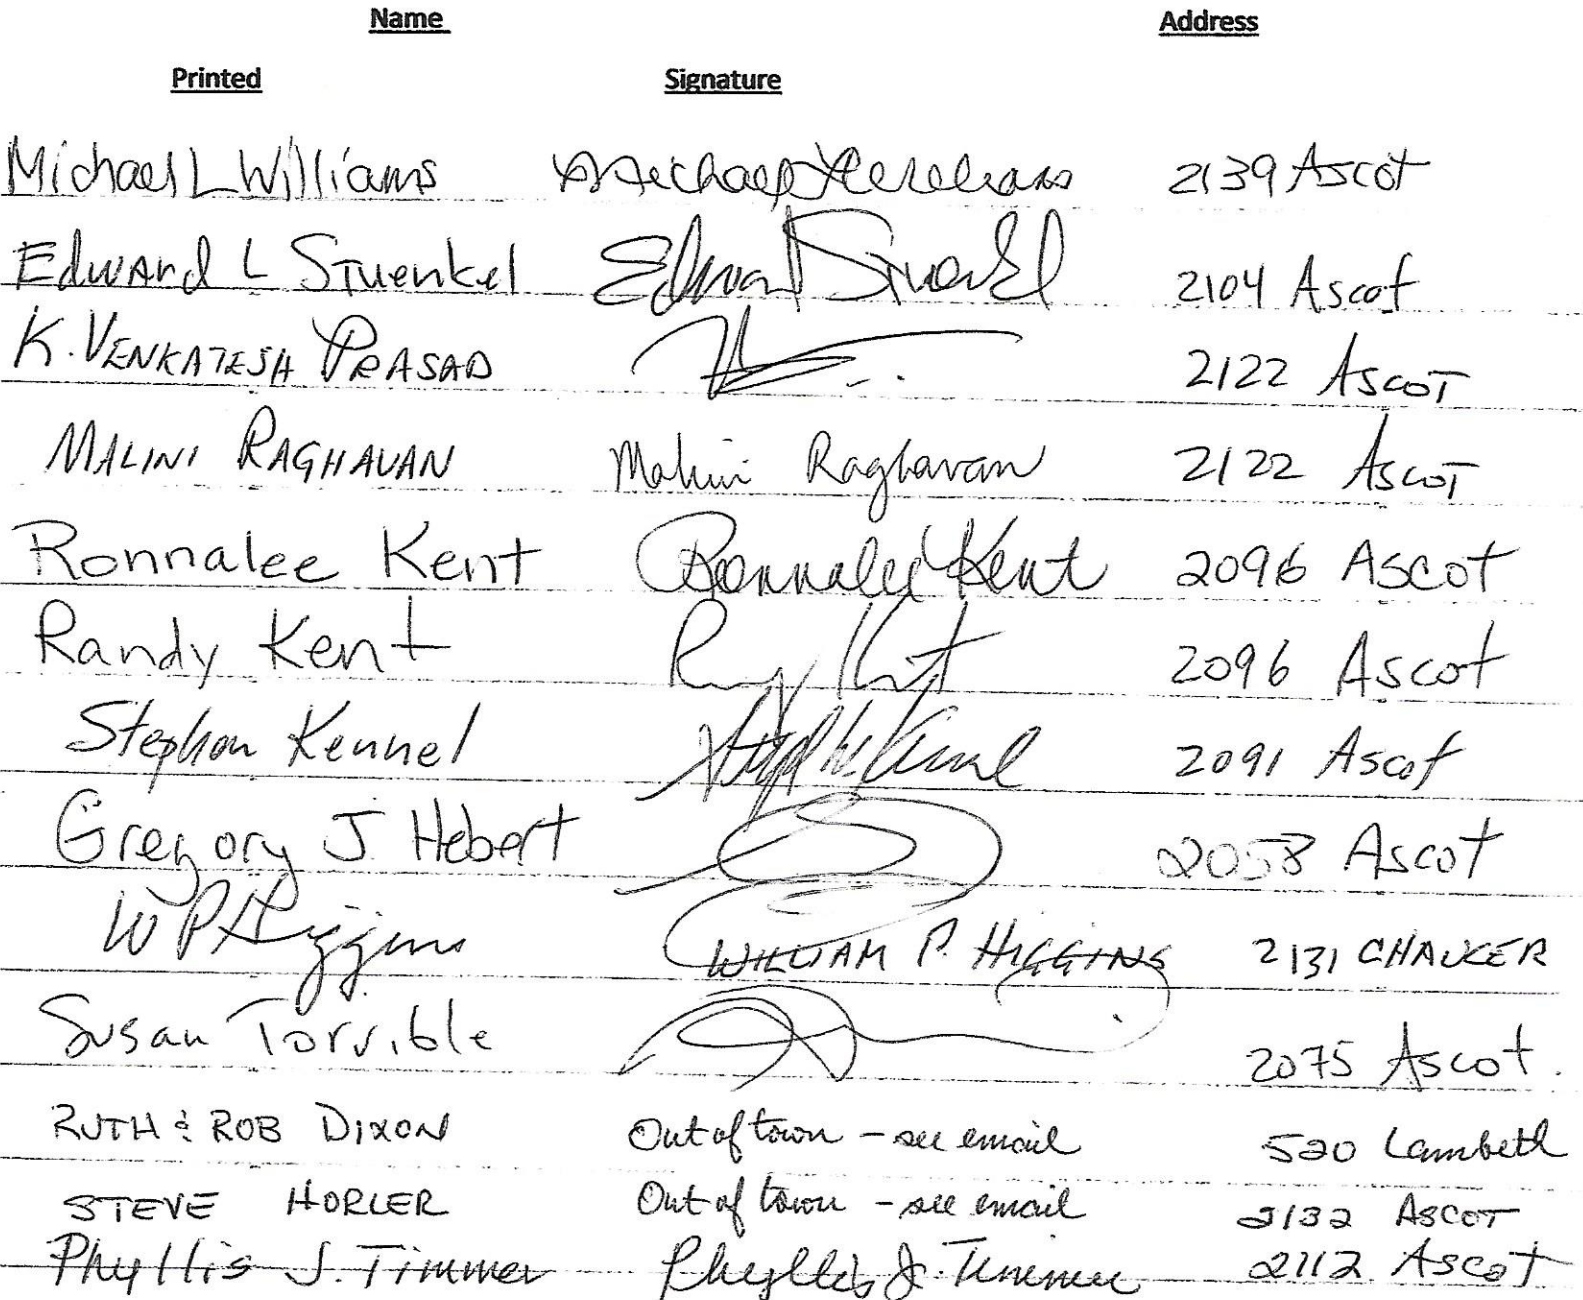 Name Address
Printed Signature
Michael L Williams Michael Williams 2139 Ascot
Edward L Stuenkel Edward Stuenkel 2104 Ascot
K. VENKATESH PRASAD 2122 ASCOT
MALINI RAGHAVAN Malini Raghavan 2122 ASCOT
Ronnalee Kent Ronnalee Kent 2096 Ascot
Randy Kent Randy Kent 2096 Ascot
Stephen Kennel Steph W. Kennel 2091 Ascot
Gregory J. Hebert 2058 Ascot
W P Higgins WILLIAM P. HIGGINS 2131 CHAUCER
Susan Torrible 2075 Ascot.
RUTH & ROB DIXON Out of town – see email 520 Lambeth
STEVE HORLER Out of town – see email 2132 ASCOT
Phyllis J. Timmer Phyllis J. Timmer 2112 Ascot